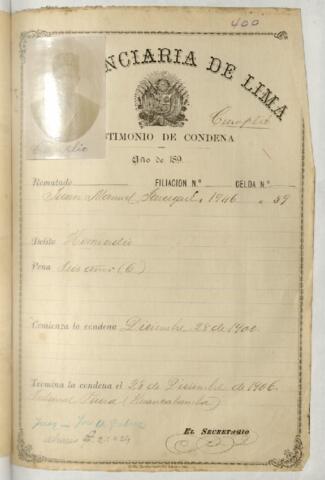 400
NCIARIA DE LIMA
Cumplió
TIMONIO DE CONDENA
Año de 189
Rematado FILIACION N.º CELDA N.º
Juan Manuel 1946 59
Delito Homicidio
Pena Seis años (6)
Comienza la condena Diciembre 28 de 1900
Termina la condena el 28 de Diciembre de 1906
Piura (Huancabamba)
EL SECRETARIO